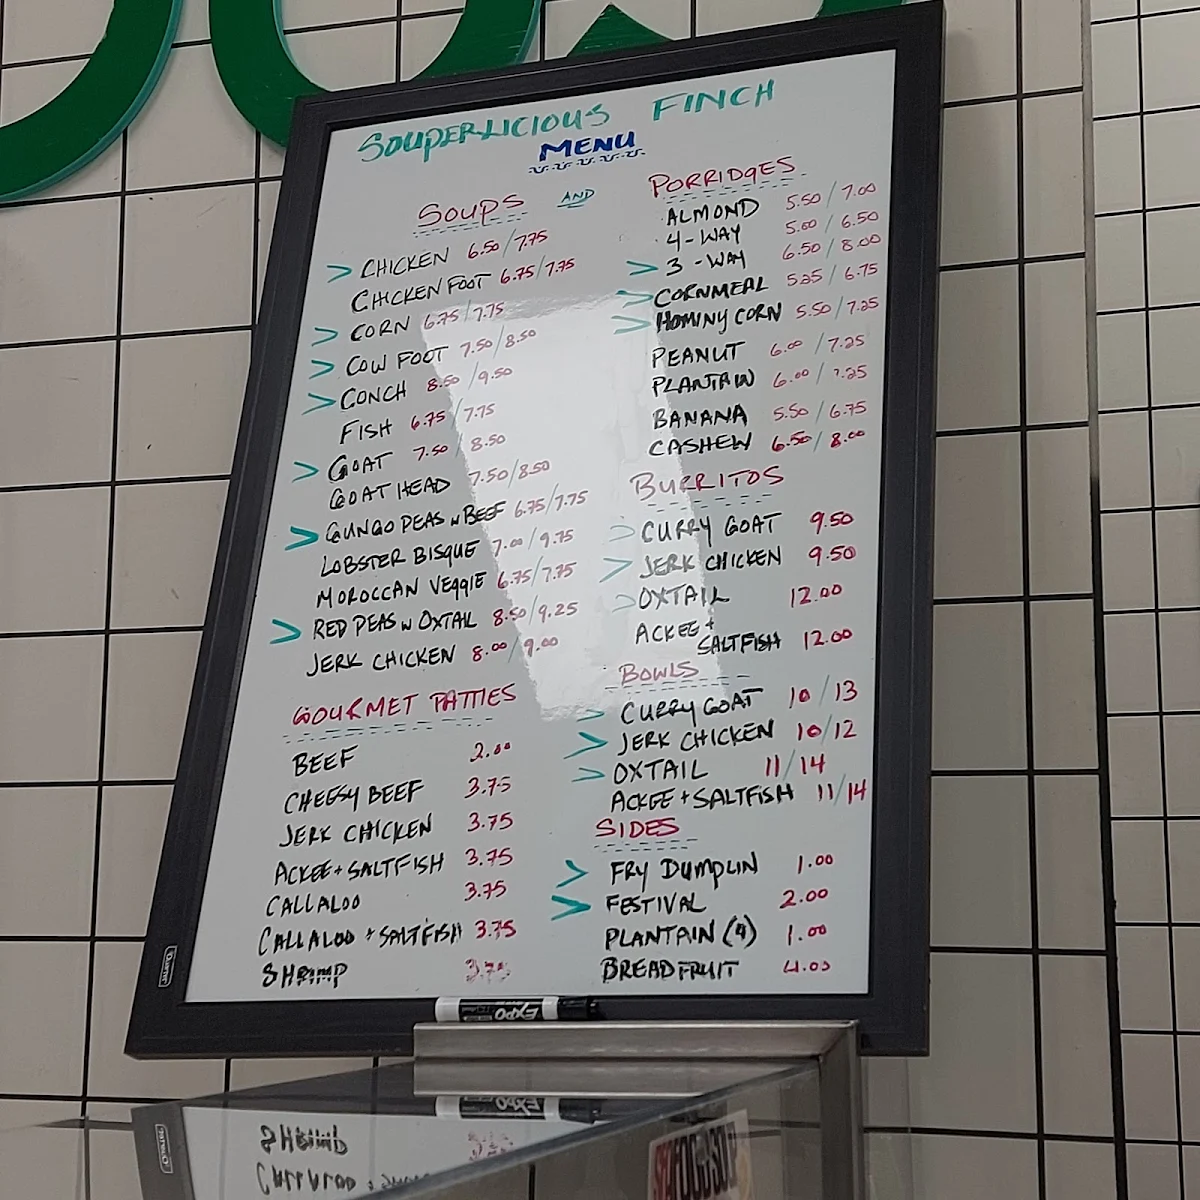 SOUPERLICIOUS FINCH
MENU
SOUPS AND
CHICKEN 6.50/7.75
CHICKEN FOOT 6.75/7.75
CORN 6.75/7.75
COW FOOT 7.50/8.50
CONCH 8.50/9.50
FISH 6.75/7.75
GOAT 7.50/8.50
GOAT HEAD 7.50/8.50
GUNGO PEAS w BEEF 6.75/7.75
LOBSTER BISQUE 7.00/9.75
MOROCCAN VEGGIE 6.75/7.75
RED PEAS w OXTAIL 8.50/9.25
JERK CHICKEN 8.00/9.00
GOURMET PATTIES
BEEF 2.00
CHEESY BEEF 3.75
JERK CHICKEN 3.75
ACKEE + SALTFISH 3.75
CALLALOO 3.75
CALLALOO + SALTFISH 3.75
SHRIMP 3.75
PORRIDGES
ALMOND 5.50/7.00
4-WAY 5.00/6.50
3-WAY 6.50/8.00
CORNMEAL 5.25/6.75
HOMINY CORN 5.50/7.25
PEANUT 6.00/7.25
PLANTAIN 6.00/7.25
BANANA 5.50/6.75
CASHEW 6.50/8.00
BURRITOS
CURRY GOAT 9.50
JERK CHICKEN 9.50
OXTAIL 12.00
ACKEE +
SALTFISH 12.00
BOWLS
CURRY GOAT 10/13
JERK CHICKEN 10/12
OXTAIL 11/14
ACKEE + SALTFISH 11/14
SIDES
FRY DUMPLIN 1.00
FESTIVAL 2.00
PLANTAIN (4) 1.00
BREADFRUIT 4.00
Quartet
EXPO